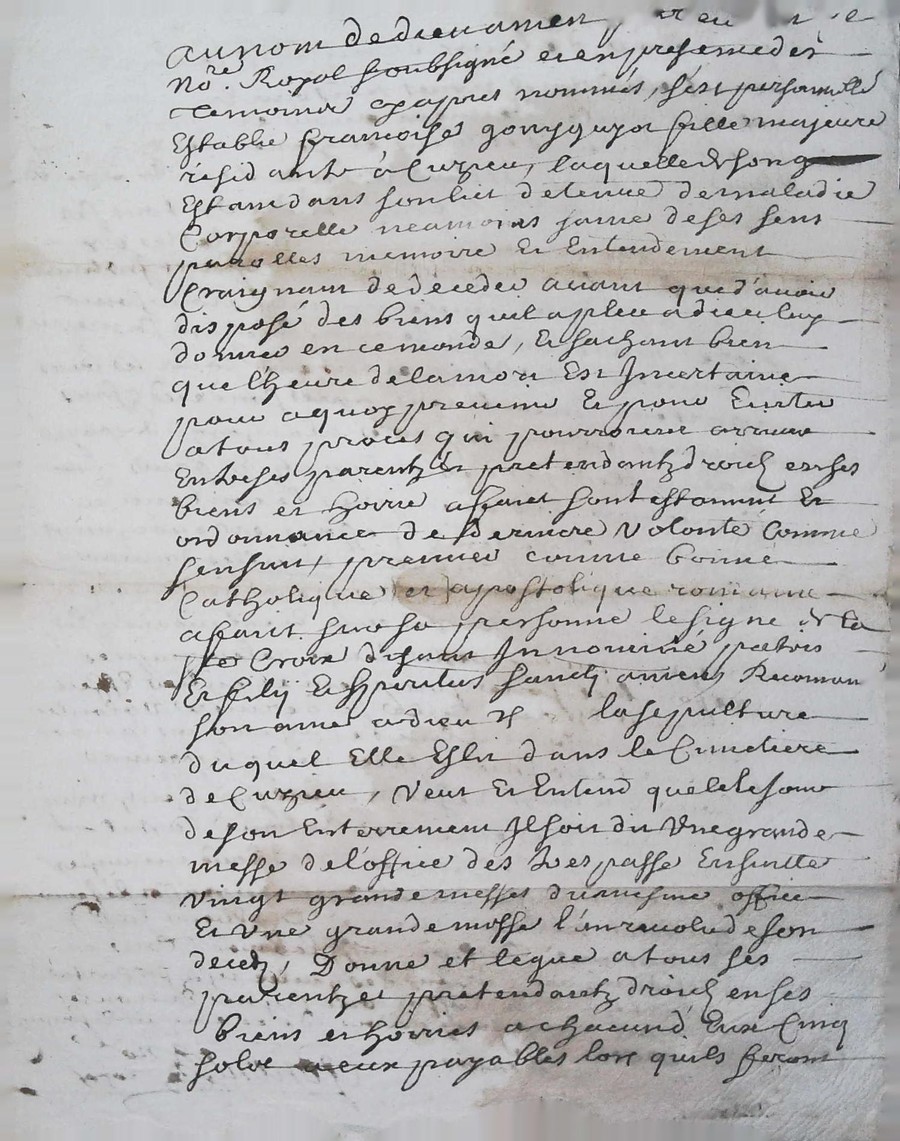 au nom de dieu amen
No.re Royal soubsigné et en presence des
temoins cy apres nommés, s'est personnelle
Establie francoise fille majeure
residante à Cuzieu, laquelle de son g
Estant dans son lict detenue de maladie
Corporelle neamoins saine de ses sens
parolles memoire Et Entendement
Craignant de deceder avant que d'avoir
disposé des biens qu'il a pleu a dieu luy
donner en ce monde, Et sachant bien
que l'heure de la mort Est Incertaine
pour a quoy prevenir Et pour Eviter
a tous proces qui pourroient arriver
Entre ses parentz Et pretendantz droictz en ses
biens et hoirie a faict son testament Et
ordonnance de derniere volonté Comme
sensuit, premier comme bonne
Catholique et apostolique romaine
a faict sur sa personne le signe de la
ste Croix disant In nominé patris
Et filij Et spiritus sancti amens Recomman
son ame a dieu la sepulture
duquel Elle Eslit dans le Cimetiere
de Cuzieu, Veut Et Entend que le Jour
de son Enterrement Il soit dit Une grande
messe de l'office des tres passe Ensuitte
vingt grande messes du mesme office
Et Une grande messe l'an revolu de son
decedz, Donne et legue a tous ses
parentz et pretendantz droictz en ses
biens et hoiries a chacun d'Eux Cinq
solz a eux payables lors qu'ils seront